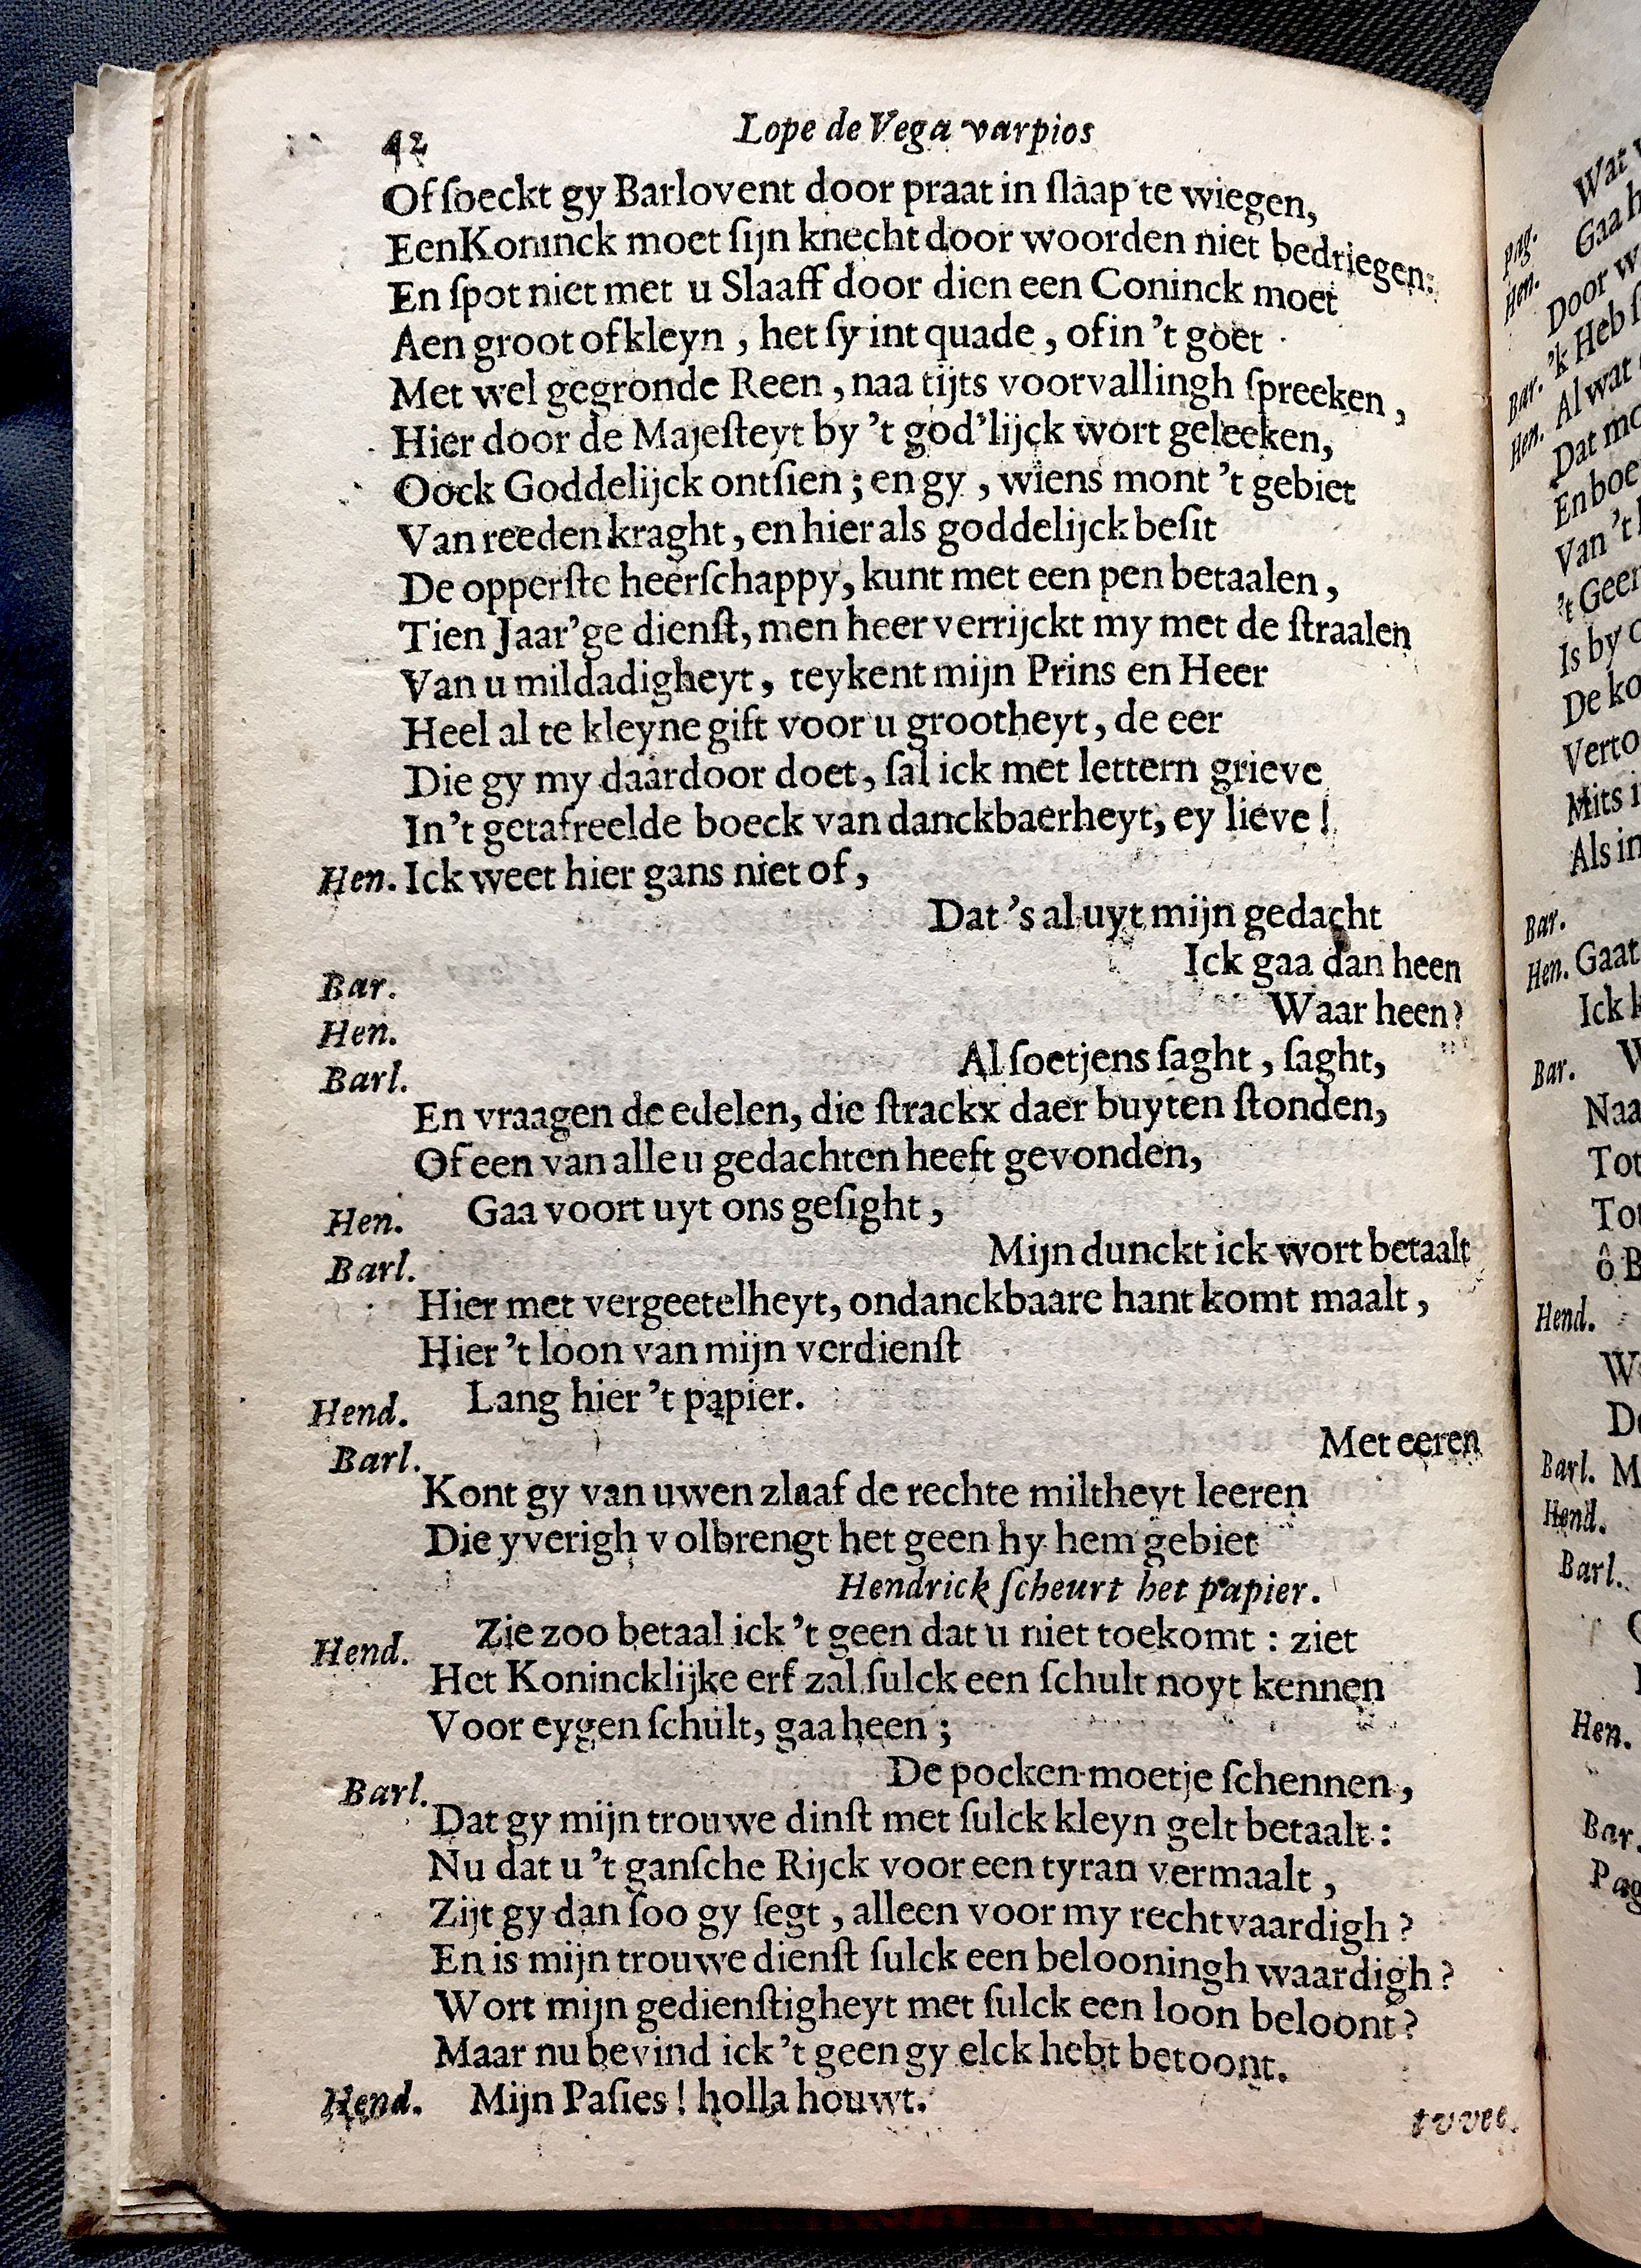 42
Lope de Vega varpios
Of ſoeckt gy Barlovent door praat in ſlaap te wiegen,
Een Koninck moet ſijn knecht door woorden niet bedriegen:
En ſpot niet met u Slaaff door dien een Coninck moet
Aen groot of kleyn , het ſy int quade , of in 't goet
Met wel gegronde Reen , naa tijts voorvallingh ſpreeken ,
Hier door de Majeſteyt by 't god'lijck wort geleeken,
Oock Goddelijck ontſien ; en gy , wiens mont 't gebiet
Van reeden kraght, en hier als goddelijck beſit
De opperſte heerſchappy, kunt met een pen betaalen ,
Tien Jaar'ge dienſt, men heer verrijckt my met de ſtraalen
Van u mildadigheyt, teykent mijn Prins en Heer
Heel al te kleyne gift voor u grootheyt, de eer
Die gy my daardoor doet, ſal ick met lettern grieve
In 't getafreelde boeck van danckbaerheyt, ey lieve !
Hen. Ick weet hier gans niet of ,
Dat 's al uyt mijn gedacht
Bar. Ick gaa dan heen
Hen. Waar heen?
Barl. Al ſoetjens ſaght , ſaght,
En vraagen de edelen, die ſtrackx daer buyten ſtonden,
Of een van alle u gedachten heeft gevonden,
Hen. Gaa voort uyt ons geſight ,
Barl. Mijn dunckt ick wort betaalt
Hier met vergeetelheyt, ondanckbaare hant komt maalt ,
Hier 't loon van mijn verdienſt
Hend. Lang hier 't papier.
Barl. Met eeren
Kont gy van uwen zlaaf de rechte miltheyt leeren
Die yverigh volbrengt het geen hy hem gebiet
Hendrick ſcheurt het papier.
Hend. Zie zoo betaal ick 't geen dat u niet toekomt : ziet
Het Konincklijke erf zal ſulck een ſchult noyt kennen
Voor eygen ſchult, gaa heen ;
Barl. De pocken moetje ſchennen,
Dat gy mijn trouwe dinſt met ſulck kleyn gelt betaalt :
Nu dat u 't ganſche Rijck voor een tyran vermaalt ,
Zijt gy dan ſoo gy ſegt , alleen voor my rechtvaardigh ?
En is mijn trouwe dienſt ſulck een belooningh waardigh ?
Wort mijn gedienſtigheyt met ſulck een loon beloont ?
Maar nu bevind ick 't geen gy elck hebt betoont.
Hend. Mijn Paſies ! holla houwt.
tvvee
Pag.
Hen.
Gaa
Door
Bar. 'k Heb
Hen. Al wat
Dat
Van 't
't Geen
Is by
De
Als in
Bar.
Hen. Gaat
Ick
Bar.
Hend.
Barl.
Hend.
Barl.
Hen.
Bar.